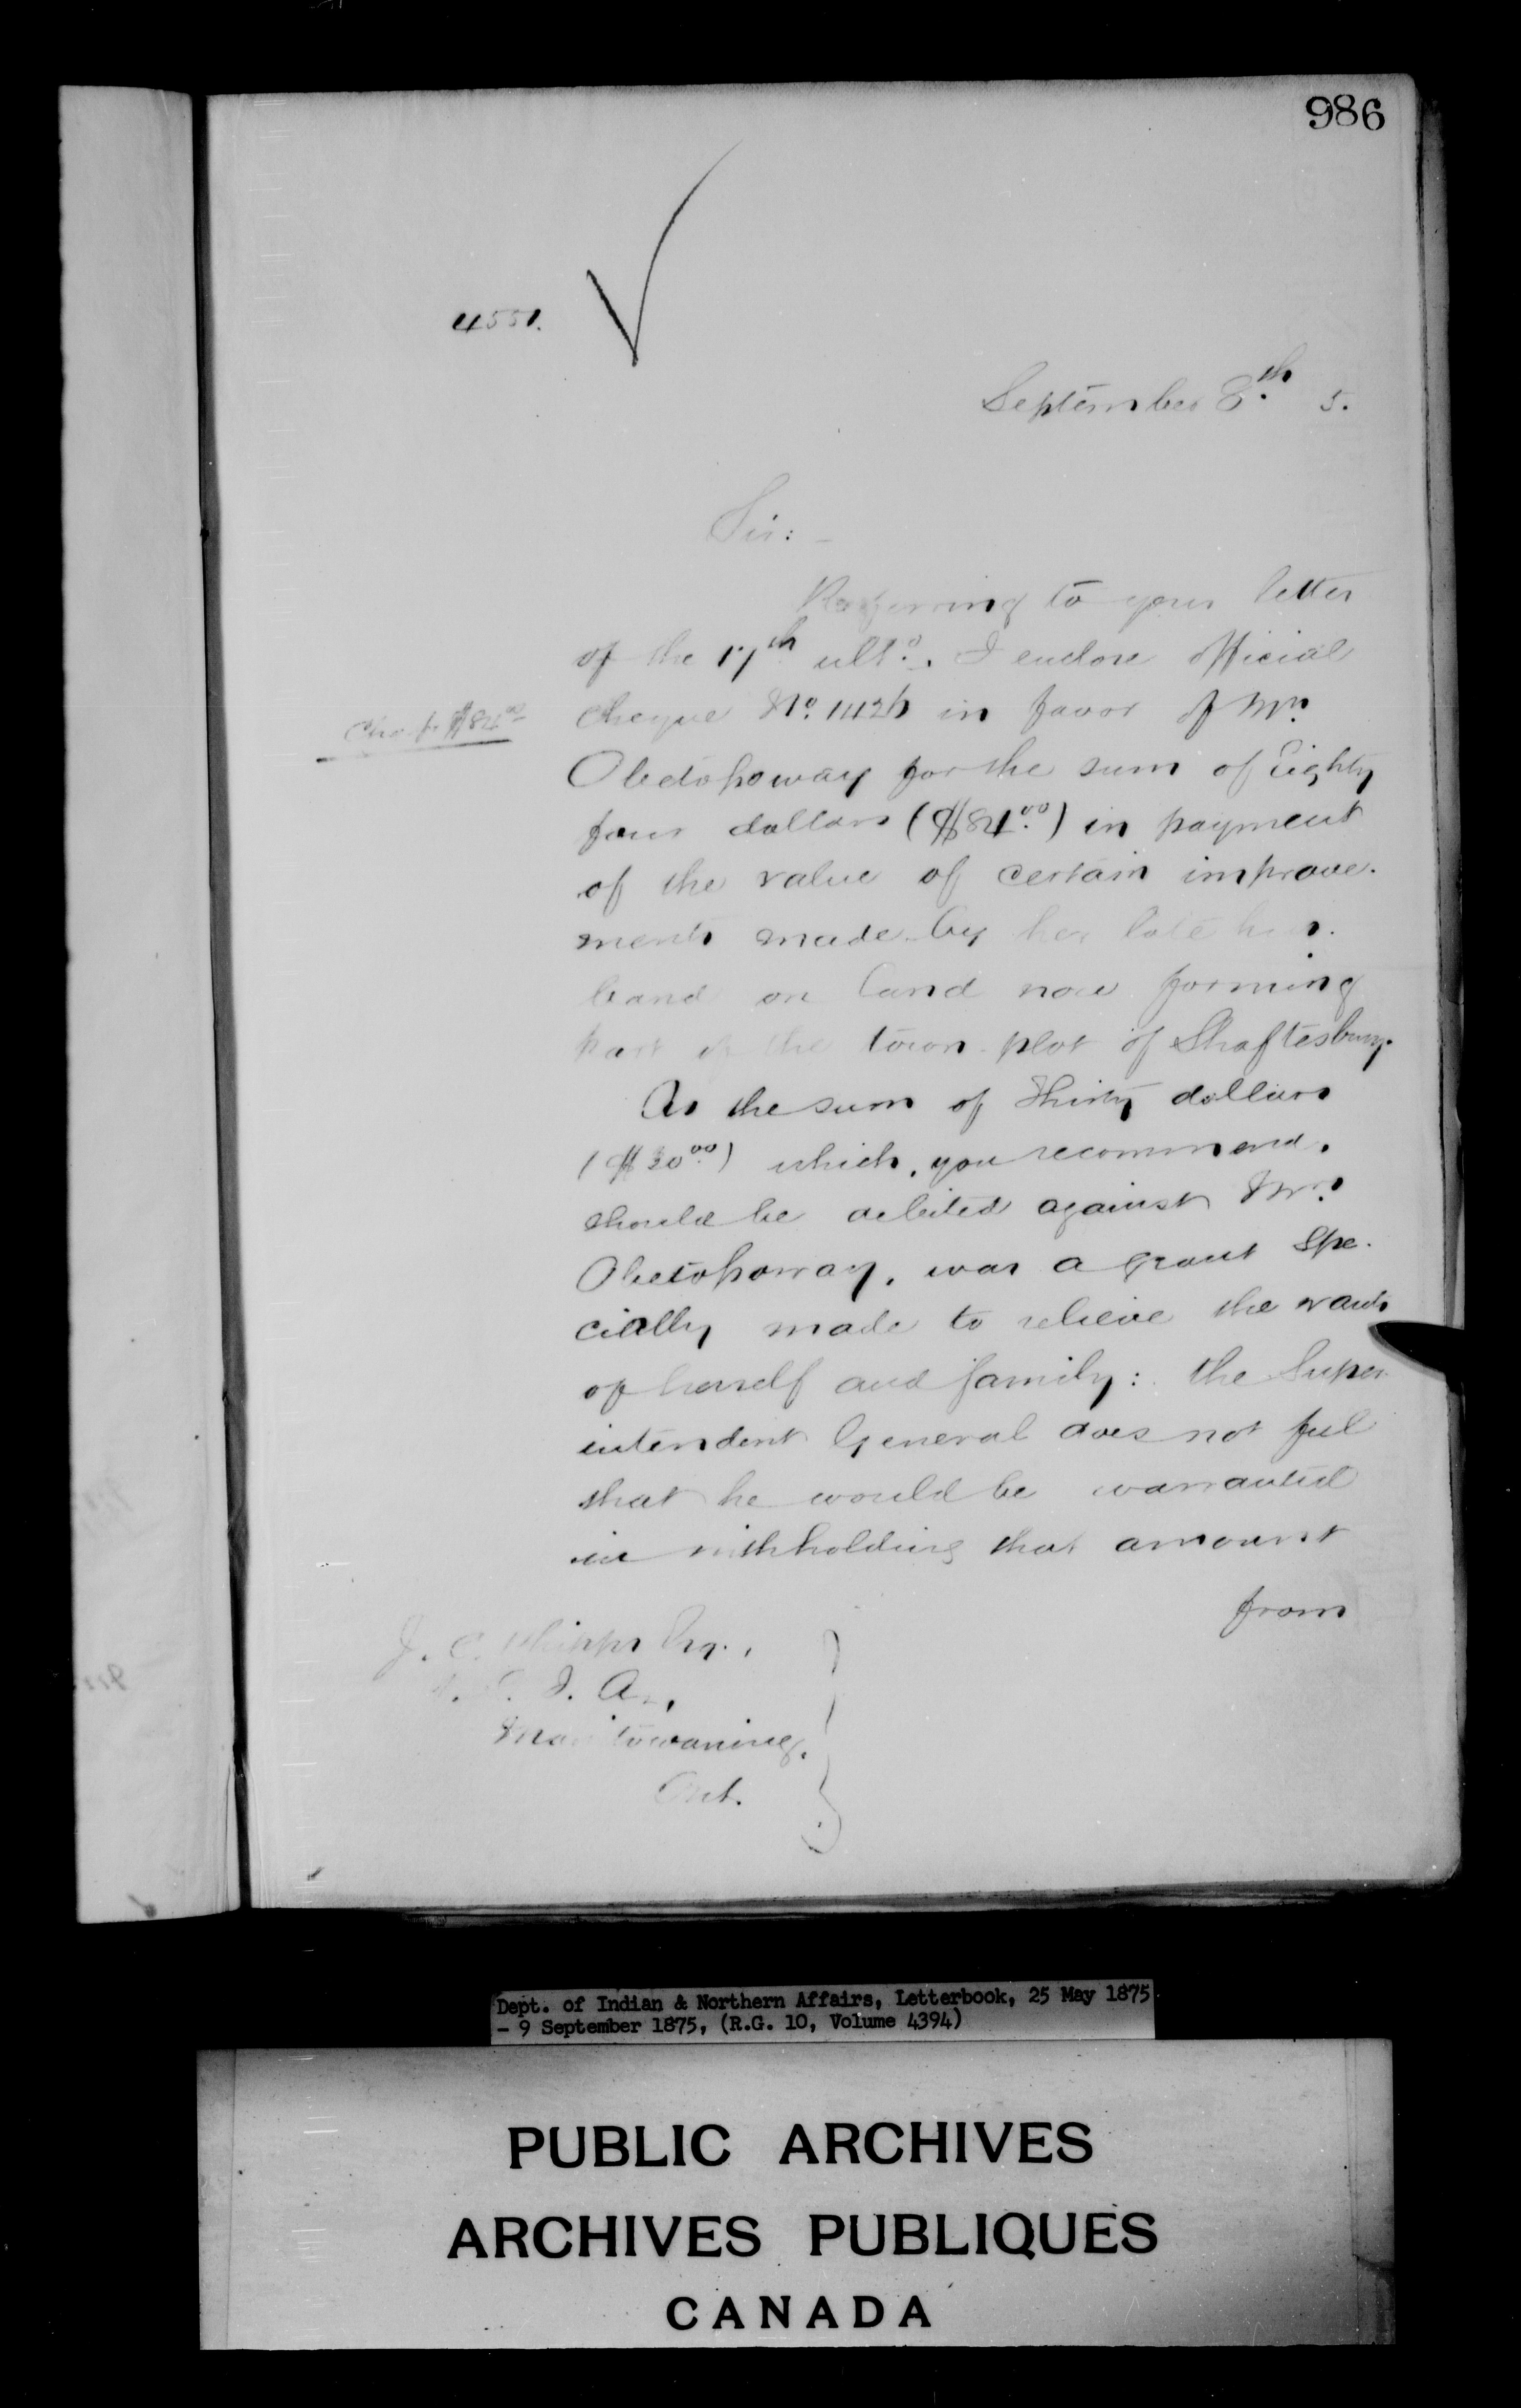 986
4551.
September 8th 5.
Sir: -
Referring to your letter
of the 17th ulto. I enclose official
cheque No. in favor of Mrs
for the sum of Eighty
four dollars ($84.00) in payment
of the value of certain improve-
ments made by her late hus-
band on land now forming
part of the town plot of Shaftesbury.
As the sum of Thirty dollars
($30.00) which, you recommend,
should be debited against Mrs.
was a grant Spe-
cially made to relieve the wants
of herself and family: the Super-
intendent General does not feel
that he would be warranted
in withholding that amount
from
Che. f. $84.00
J. C. Phipps Esq.,
I. A.,
Manitowaning,
Ont.
Dept. of Indian & Northern Affairs, Letterbook, 25 May 1875
- 9 September 1875, (R.G. 10, Volume 4394)
PUBLIC ARCHIVES
ARCHIVES PUBLIQUES
CANADA